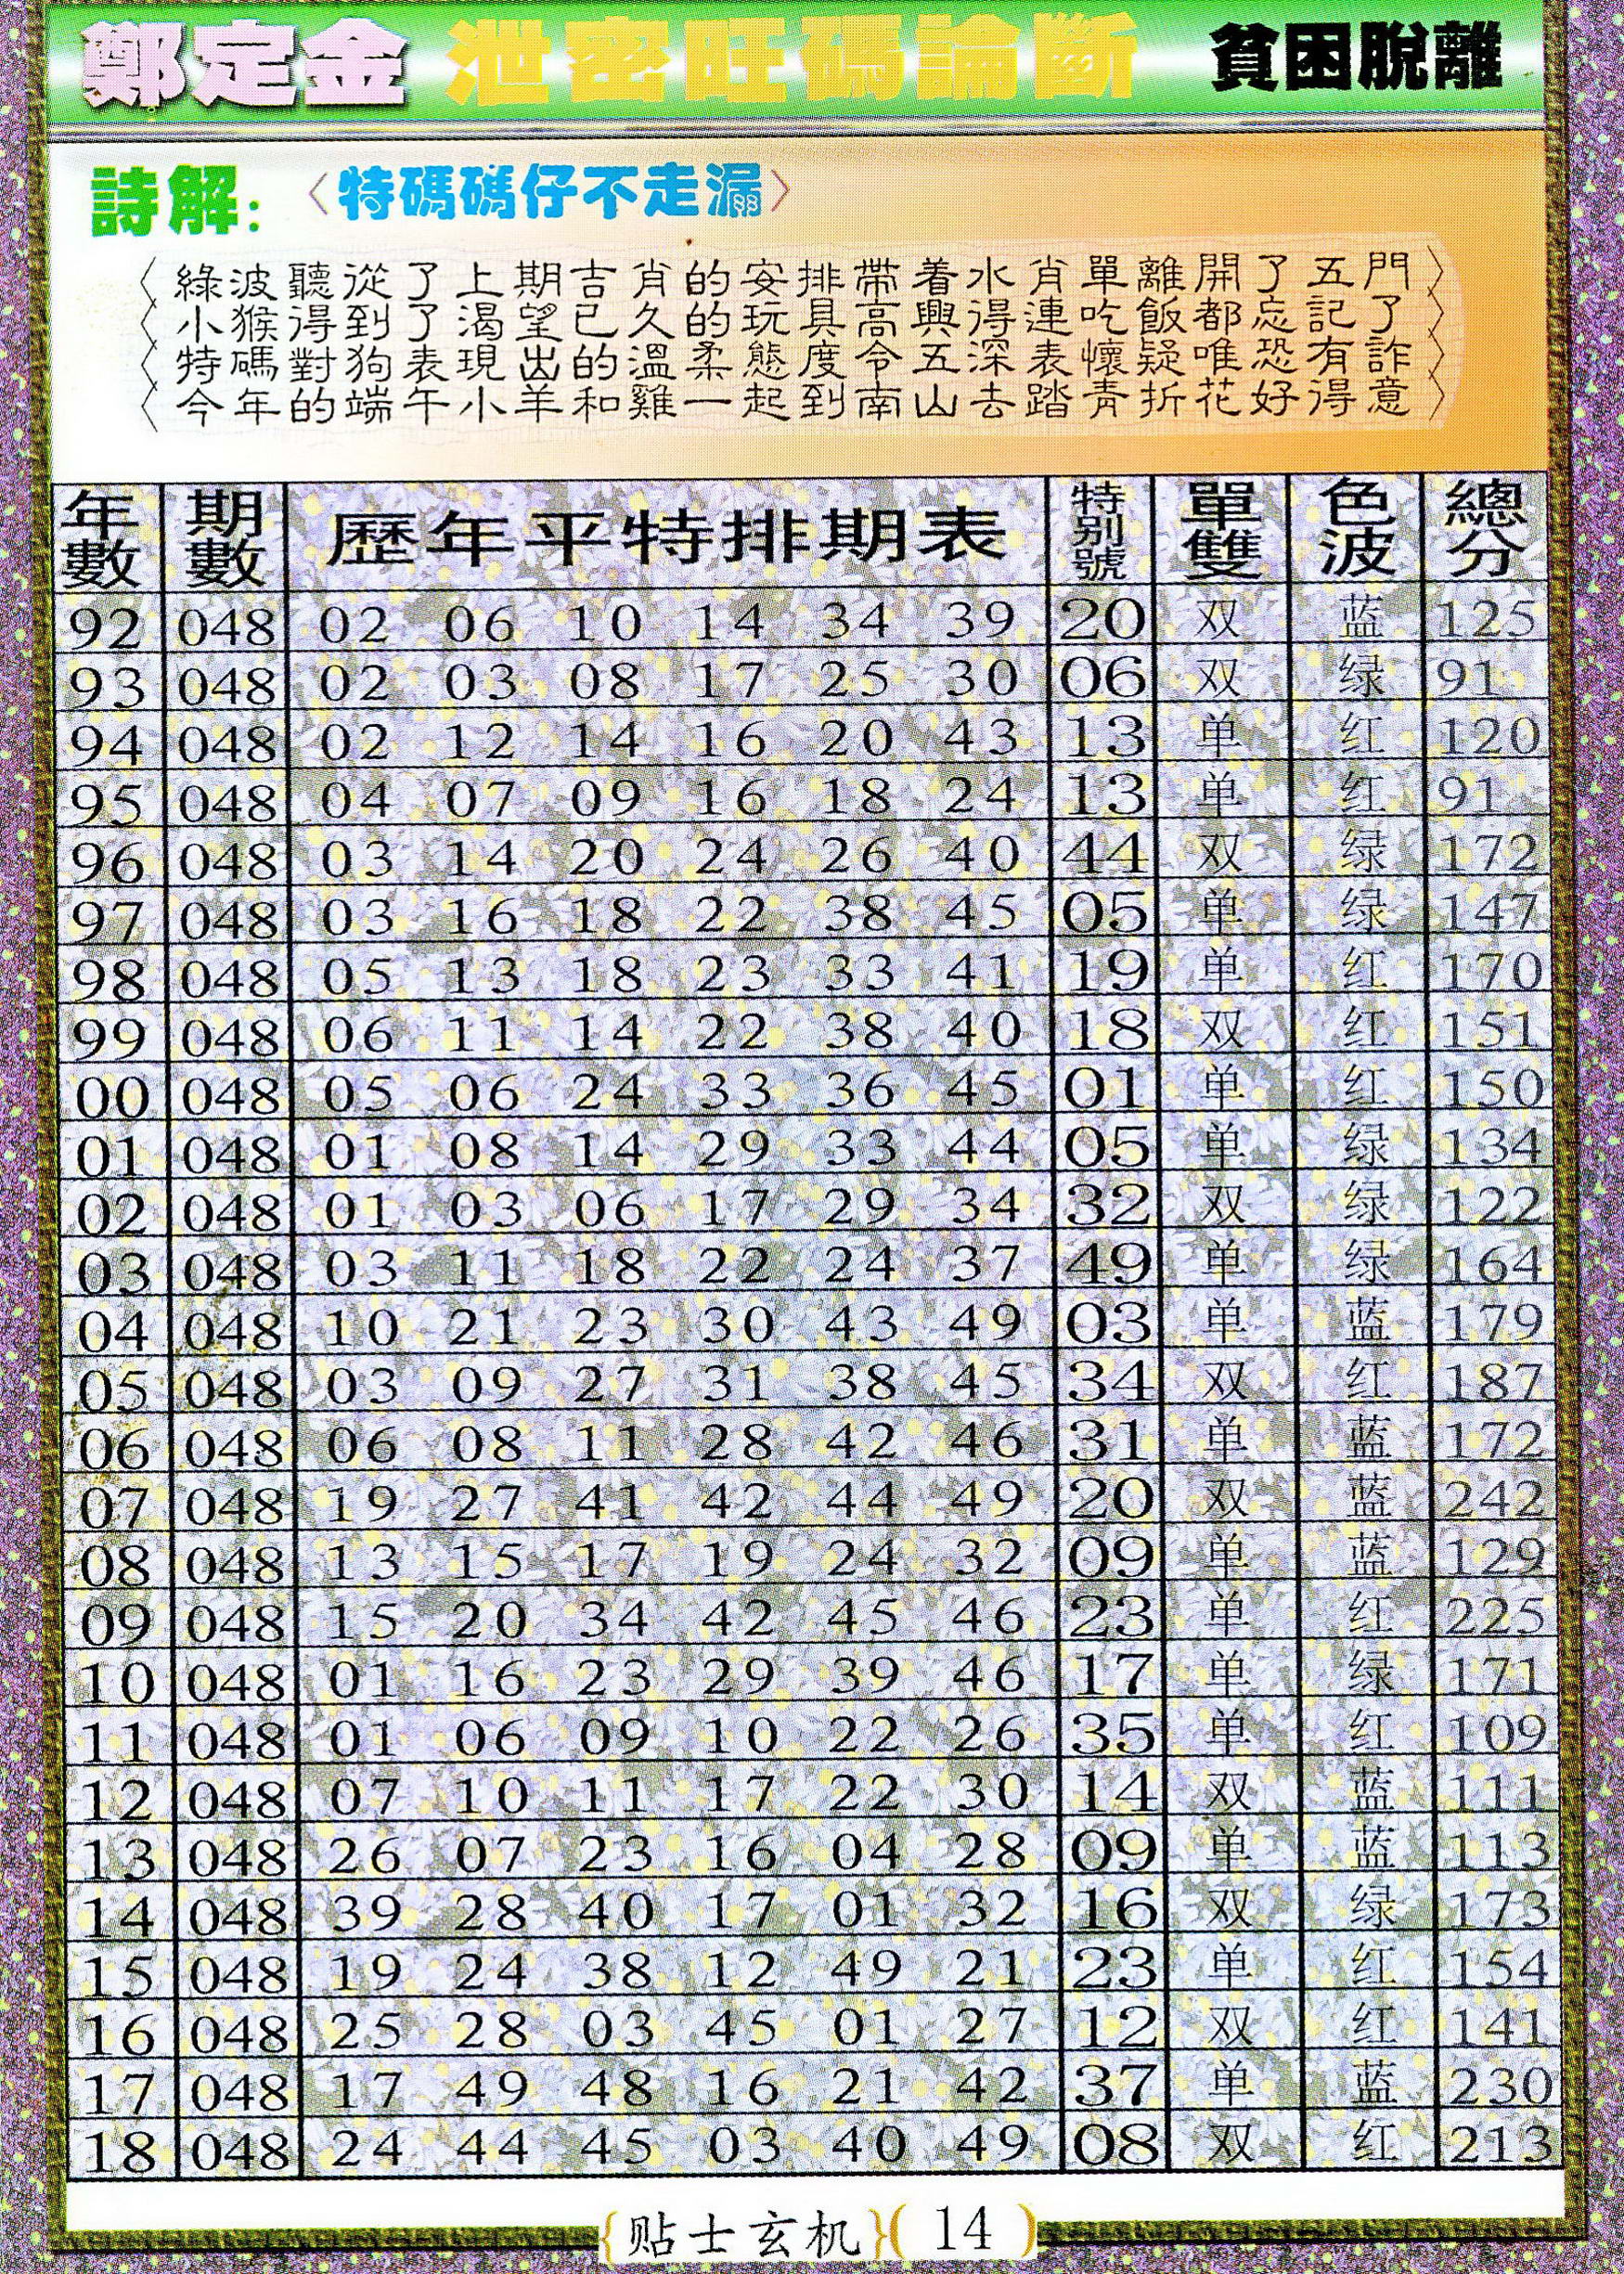 鄭定金 泄密旺碼論斷 貧困脫離
詩解:〈特碼碼仔不走漏〉
綠波聽從了上期吉肖的安排帶着水肖單離開了五門
小猴得到了渴望已久的玩具高興得連吃飯都忘記了
特碼對狗表現出的溫柔態度令五深表懷疑唯恐有詐
今年的端午小羊和雞一起到南山去踏青折花好得意
年數 期數 歷年平特排期表 特别號 單雙 色波 總分
92 048 02 06 10 14 34 39 20 双 蓝 125
93 048 02 03 08 17 25 30 06 双 绿 91
94 048 02 12 14 16 20 43 13 单 红 120
95 048 04 07 09 16 18 24 13 单 红 91
96 048 03 14 20 24 26 40 44 双 绿 172
97 048 03 16 18 22 38 45 05 单 绿 147
98 048 05 13 18 23 33 41 19 单 红 170
99 048 06 11 14 22 38 40 18 双 红 151
00 048 05 06 24 33 36 45 01 单 红 150
01 048 01 08 14 29 33 44 05 单 绿 134
02 048 01 03 06 17 29 34 32 双 绿 122
03 048 03 11 18 22 24 37 49 单 绿 164
04 048 10 21 23 30 43 49 03 单 蓝 179
05 048 03 09 27 31 38 45 34 双 红 187
06 048 06 08 11 28 42 46 31 单 蓝 172
07 048 19 27 41 42 44 49 20 双 蓝 242
08 048 13 15 17 19 24 32 09 单 蓝 129
09 048 15 20 34 42 45 46 23 单 红 225
10 048 01 16 23 29 39 46 17 单 绿 171
11 048 01 06 09 10 22 26 35 单 红 109
12 048 07 10 11 17 22 30 14 双 蓝 111
13 048 26 07 23 16 04 28 09 单 蓝 113
14 048 39 28 40 17 01 32 16 双 绿 173
15 048 19 24 38 12 49 21 23 单 红 154
16 048 25 28 03 45 01 27 12 双 红 141
17 048 17 49 48 16 21 42 37 单 蓝 230
18 048 24 44 45 03 40 49 08 双 红 213
{贴士玄机}(14)